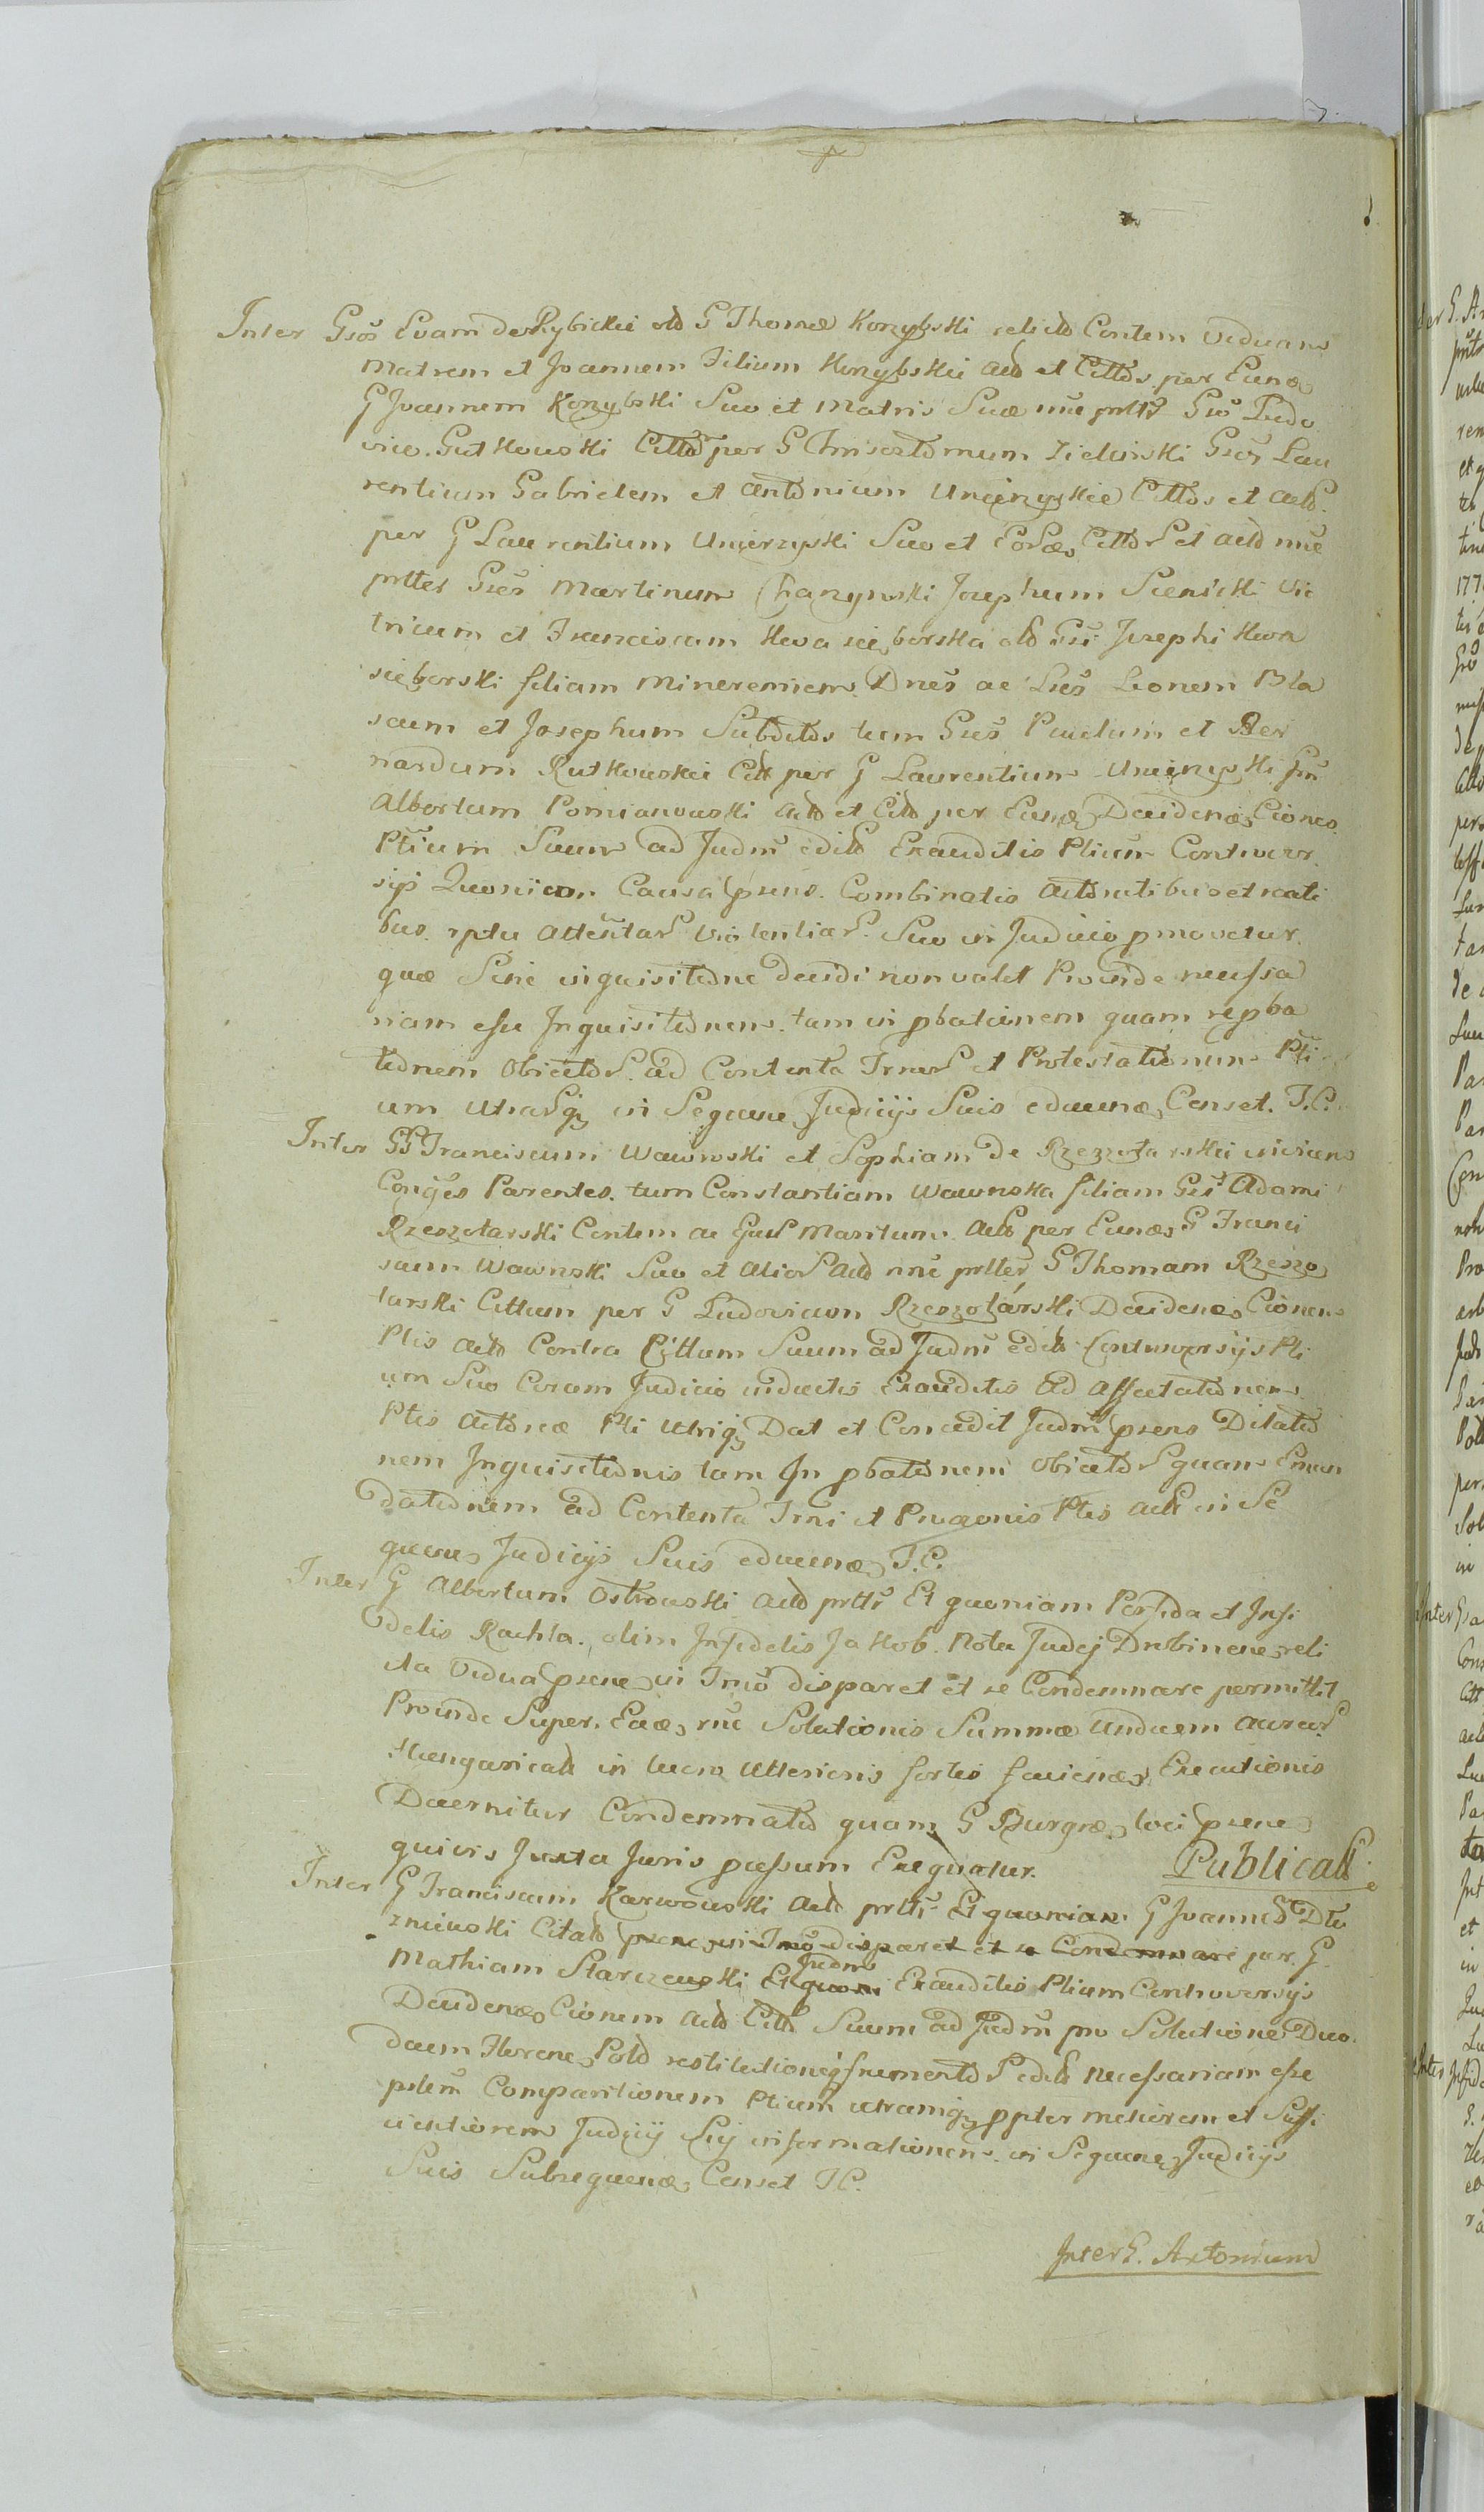 Inter Gsos Evam de Rybickie olo G Thomæ Korzybski relicto Contem viduam
Matrem et Joannem Filium Korzybskie Acto et Cittos per Eunæ
G Joannem Korzybski Suo et Matris Suæ nne prltr Gso Ludo
vico. Gutkowski Citto per G Chrisostomum Zielinski Gsos Lau
rentium Gabrielem et Antonium Unierzyskie Cittos et Acto.
per G Laurentium Unierzyski Suo et Eoræ Citto et Acto nne
prlter Gses Martinum Charzynski Josephum Sienicki Vi
tricum et Franciscam Kwasieborska olo Gsi Josephi Kwa
sieborski filiam Minorennem Dnes ac Lies Leonem Bla
sium et Josephum Subditos tum Gses Paulum et Ber
nardum Rutkowskie Citt per G Laurentium Unierzyski
Albertum Pomianowski Acto et Cito per Eunæ Decidenæ Ciones
Ptium Suum ad Judm edito Exauditis Ptium Controver
sijs Quoniam Causa psens. Combinatis Actoratibus et reati
bus. rptu Attentar violentiar. Suo in Judicio pmovetur.
quæ Sine inquisitione decidi non valet Proinde necessa
riam esse Inquisitionem. tam in pbationem quam repba
tionem Obictor. ad Contenta Trnor et Protestationum Pti
um utrarq in Sequen Judicijs Suis educenæ Censet. T.C.
Inter GG Franciscum Wawrowski et Sophiam de Rzeszotarskie
Conges Parentes. tum Constantiam Wawroska filiam Gsi Adami
Rzeszotarski Contem ac Ejus Maritum. Acto per Eunæ G Franci
scum Wawroski Suo et Alior Acto nne prlter G Thomam Rzeszo
tarski Cittum per G Ludovicum Rzeszotarski Decidenæ Cionem
Ptis Acto Contra Cittum Suum ad Judm edito Controversijs Pti
um Suo Coram Judicio inductis Exauditis Ad Affectationem
Ptis Actoreæ Pti utriq Dat et Concedit Judm psens Dilatio
nem Inquisitionis tam In pbationem Obictor quam Emun
dationem ad Contenta Trni et Ptis Acto in Se
quen Judicijs Suis educenæ T.C.
Inter G Albertum Ostrowski Acto prltr Et quoniam Perfida et Infi
delis Rachla. olim Infidelis Jakob. Notu Judej Drobinen reli
cta Vidua psene in Trno disparet et se Condemnare permittit
Proinde Super. Eaæ rne Solutionis Summæ Undecim Aureor
Hungarical in lucro Ulterioris fortis facienæ Executionis
Decernitur Condemnatio quam G Burgræ loci psene
quivis Juxta Juris pressum Exequatur. Publicatt
Inter G Franciscum Karwowski Acto prltr Et quoniam G Joannes Dłu
zniewski Citato psene in Trno disparet et se Condemnare per. G.
Mathiam Starczewski Et quoni Judm Exauditis Ptium Controversijs
Decidenæ Cionem Acto Citto Suum ad Judm pro Solutione Duo.
decim Floren Polo restitutioneq frumento edito Necessariam esse
pslem Comparitionem Ptium utramq ppter meliorem et Suffi
cientiorem Judicij Sij informationem. in Sequen Judicijs
Suis Subsequenæ Censet T.C.
Inter G. Antonium